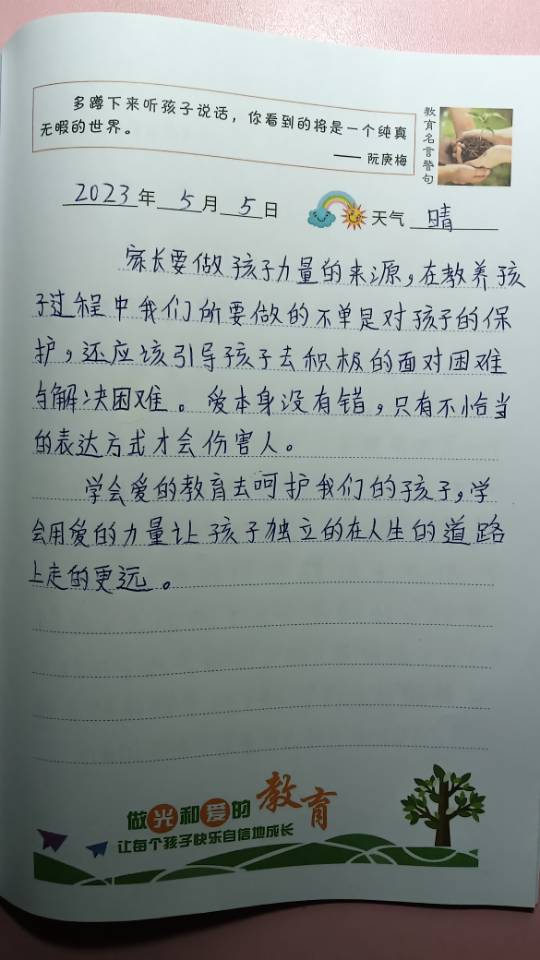 多蹲下来听孩子说话，你看到的将是一个纯真
无暇的世界。
—— 阮庚梅
教育名言警句
2023年 5月5日 天气 晴
家长要做孩子力量的来源，在教养孩
子过程中我们所要做的不单是对孩子的保
护，还应该引导孩子去积极的面对困难
与解决困难。爱本身没有错，只有不恰当
的表达方式才会伤害人。
学会爱的教育去呵护我们的孩子，学
会用爱的力量让孩子独立的在人生的道路
上走的更远。
做光和爱的教育
让每个孩子快乐自信地成长